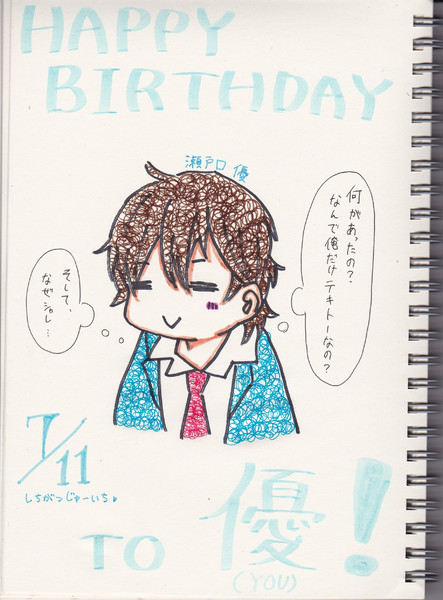 HAPPY
BIRTHDAY
瀬戸口 優
何があったの?
なんで俺だけテキトーなの?
そして、
なぜショルレ…
7/11
しちがつじゅーいち♥
TO 優!
(YOU)